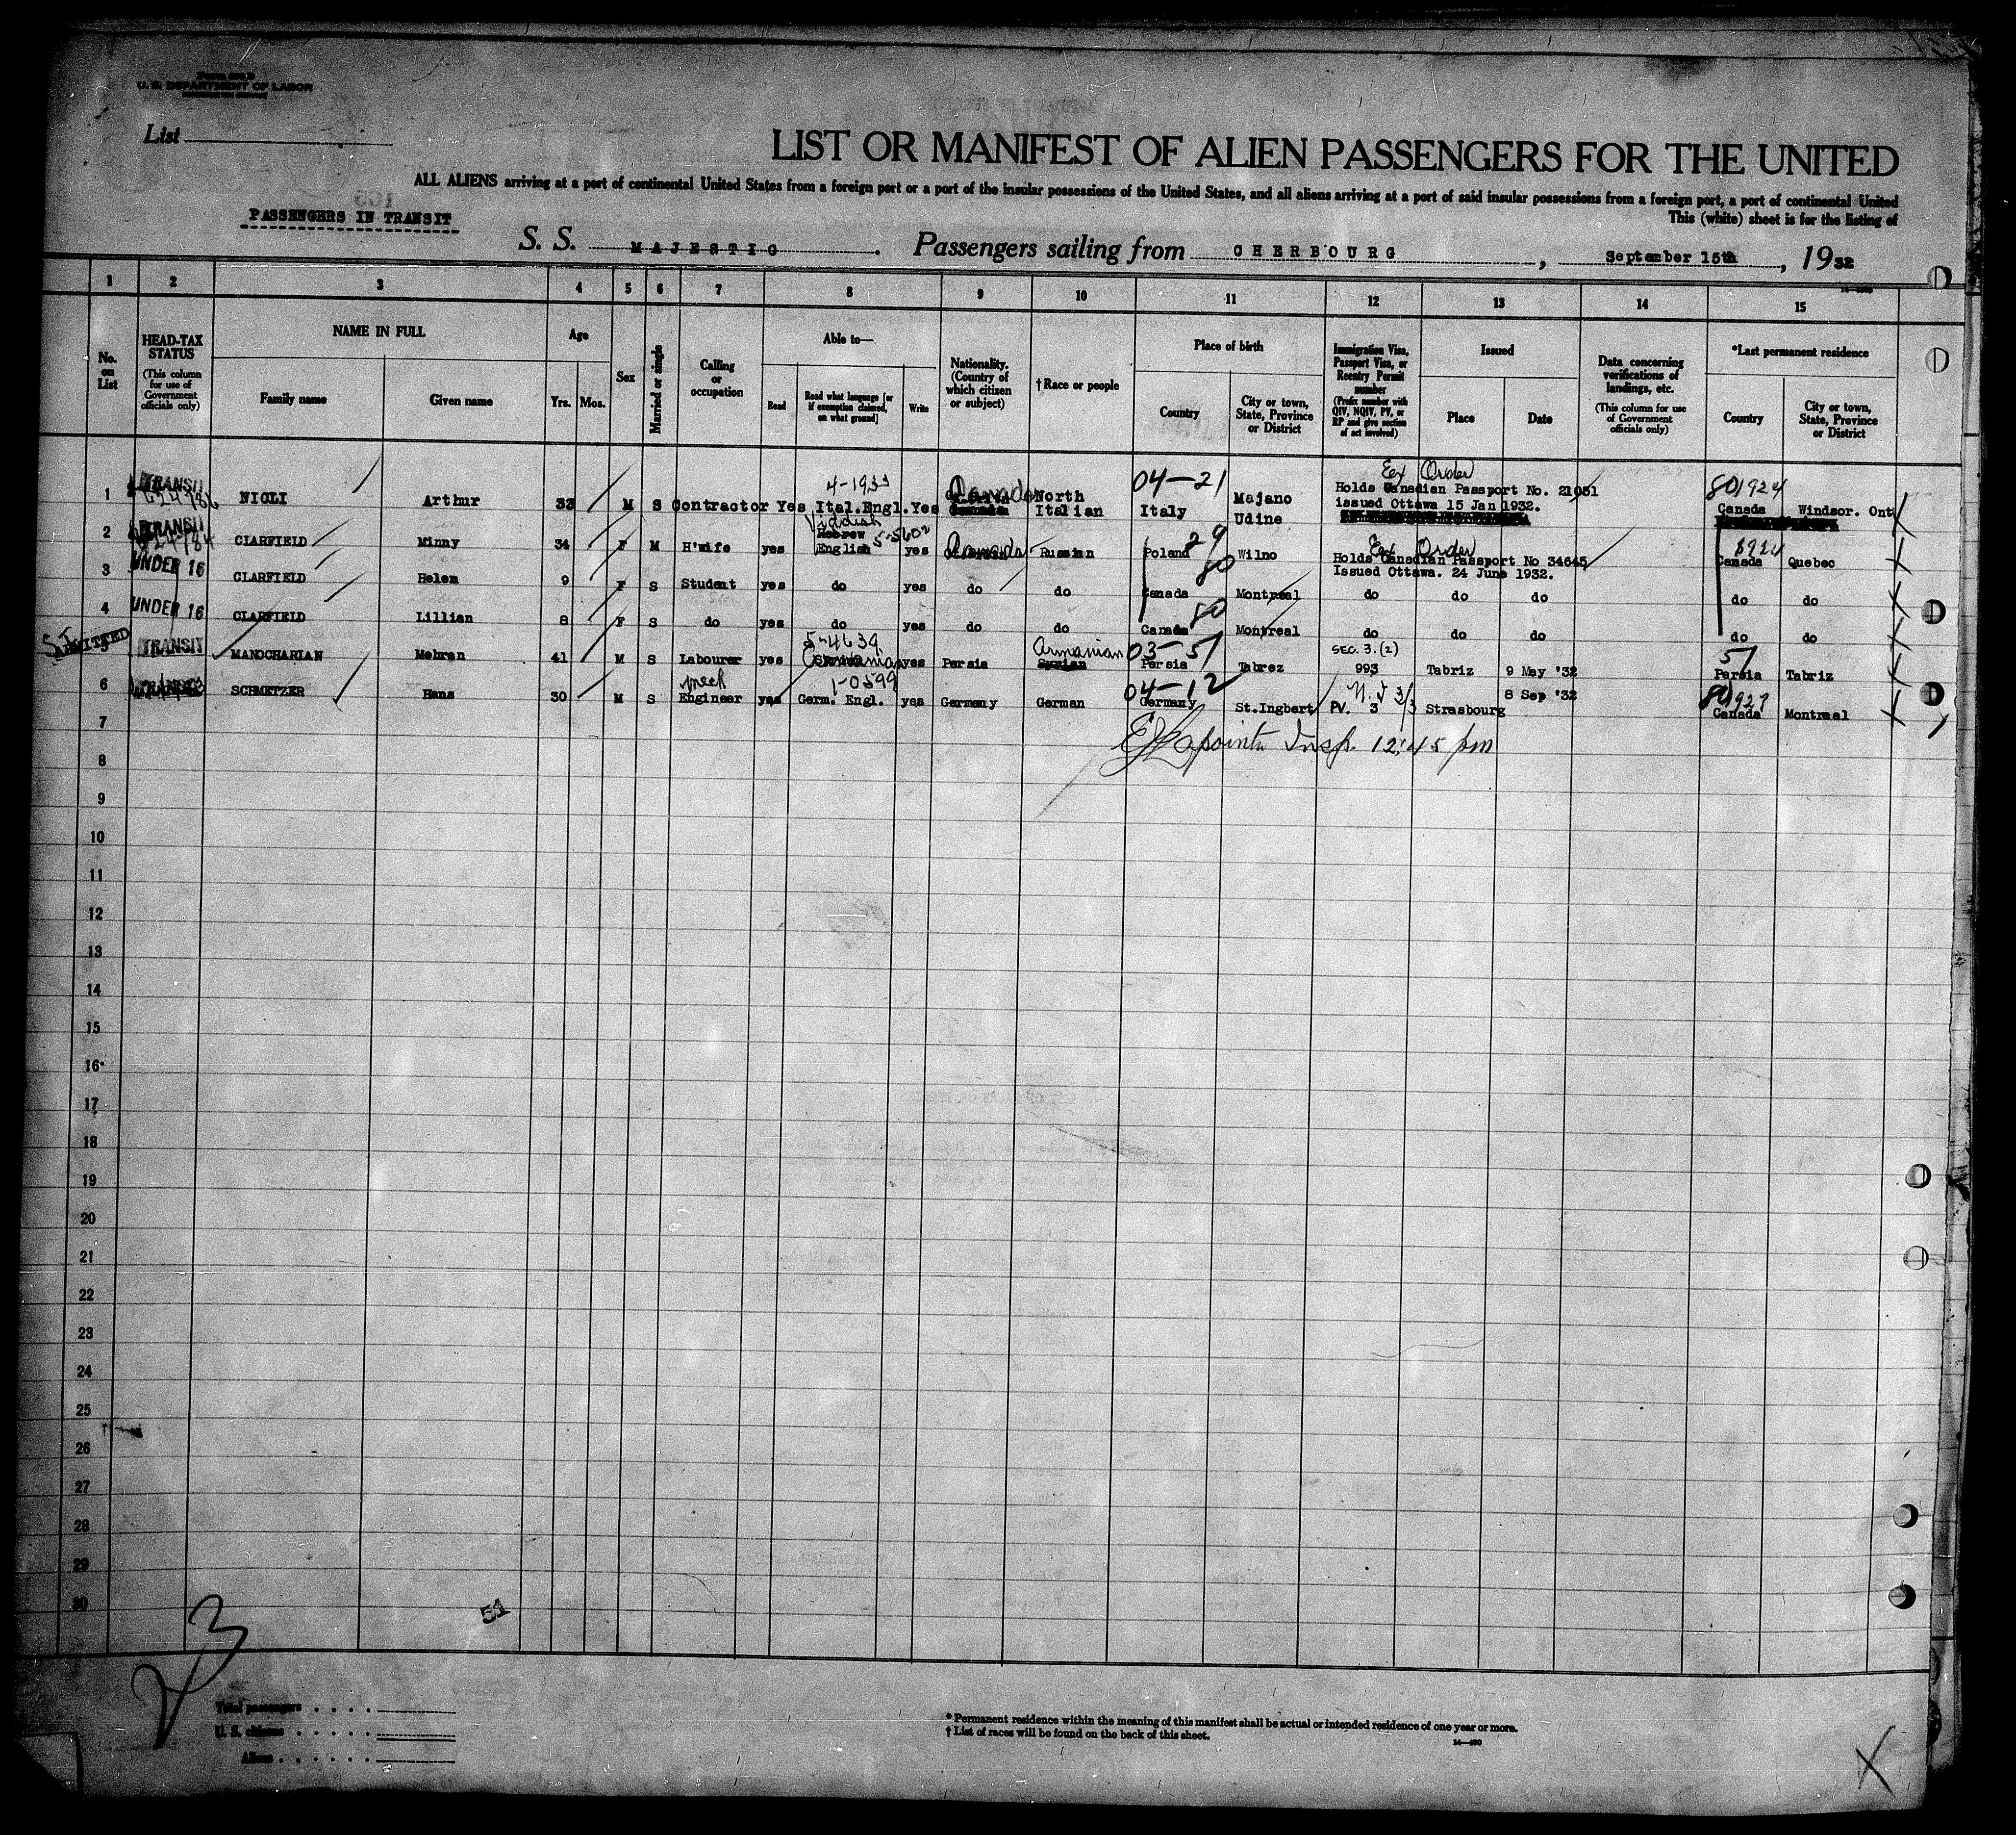 U. S. DEPARTMENT OF LABOR
List
LIST OR MANIFEST OF ALIEN PASSENGERS FOR THE UNITED
ALL ALIENS arriving at a port of continental United States from a foreign port or a port of the insular possessions of the United States, and all aliens arriving at a port of said insular possessions from a foreign port, a port of continental United
This (white) sheet is for the listing of
PASSENGERS IN TRANSIT
S. S. MAJESTIC. Passengers sailing from CHERBOURG, September 15th, 1932
1 2 3 4 5 6 7 8 9 10 11 12 13 14 15
No. on List
HEAD-TAX STATUS (This column for use of Government officials only)
NAME IN FULL
Family name
Given name
Age
Yrs. Mos.
Sex
Married or single
Calling or occupation
Able to—
Read
Read what language [or if exemption claimed, on what ground]
Write
Nationality. (Country of which citizen or subject)
†Race or people
Place of birth
Country
City or town, State, Province or District
Immigration Visa, Passport Visa, or Reentry Permit number (Prefix number with QIV, NQIV, PV, or RP and give section of act involved)
Issued
Place
Date
Data concerning verifications of landings, etc. (This column for use of Government officials only)
*Last permanent residence
Country
City or town, State, Province or District
4-1933 Canada 04-21 Ex Order 80 1924
1 TRANSIT NIGLI Arthur 33 M S Contractor Yes Ital.Engl. Yes North Italian Italy Majano Udine Holds Canadian Passport No. 21051 issued Ottawa 15 Jan 1932. Canada Windsor. Ont
Yiddish 5-5602 29 Ex Order 1924
2 TRANSIT CLARFIELD Minny 34 F M H'wife yes Hebrew English yes Canada Russian Poland Wilno Holds Canadian Passport No 34645 Issued Ottawa. 24 June 1932. Canada Quebec
3 UNDER 16 CLARFIELD Helen 9 F S Student yes do yes do do Canada 80 Montreal do do do do do
4 UNDER 16 CLARFIELD Lillian 8 F S do yes do yes do do Canada 80 Montreal do do do do do
5-4639 Armanian 03-51 SEC. 3.(2) 51
5 ADMITTED TRANSIT MANOCHARIAN Mehran 41 M S Labourer yes Armanian yes Persia Syrian Persia Tabrez 993 Tabriz 9 May '32 Persia Tabriz
mech 1-0599 04-12 80 1927
6 SCHMETZER Hans 30 M S Engineer yes Germ. Engl. yes Germany German Germany St.Ingbert PV. 3 Strasbourg 8 Sep '32 Canada Montreal
Insp. 12:45 pm
7
8
9
10
11
12
13
14
15
16
17
18
19
20
21
22
23
24
25
26
27
28
29
30
51
Total passengers
U. S. citizens
Aliens
* Permanent residence within the meaning of this manifest shall be actual or intended residence of one year or more.
† List of races will be found on the back of this sheet.
14—430